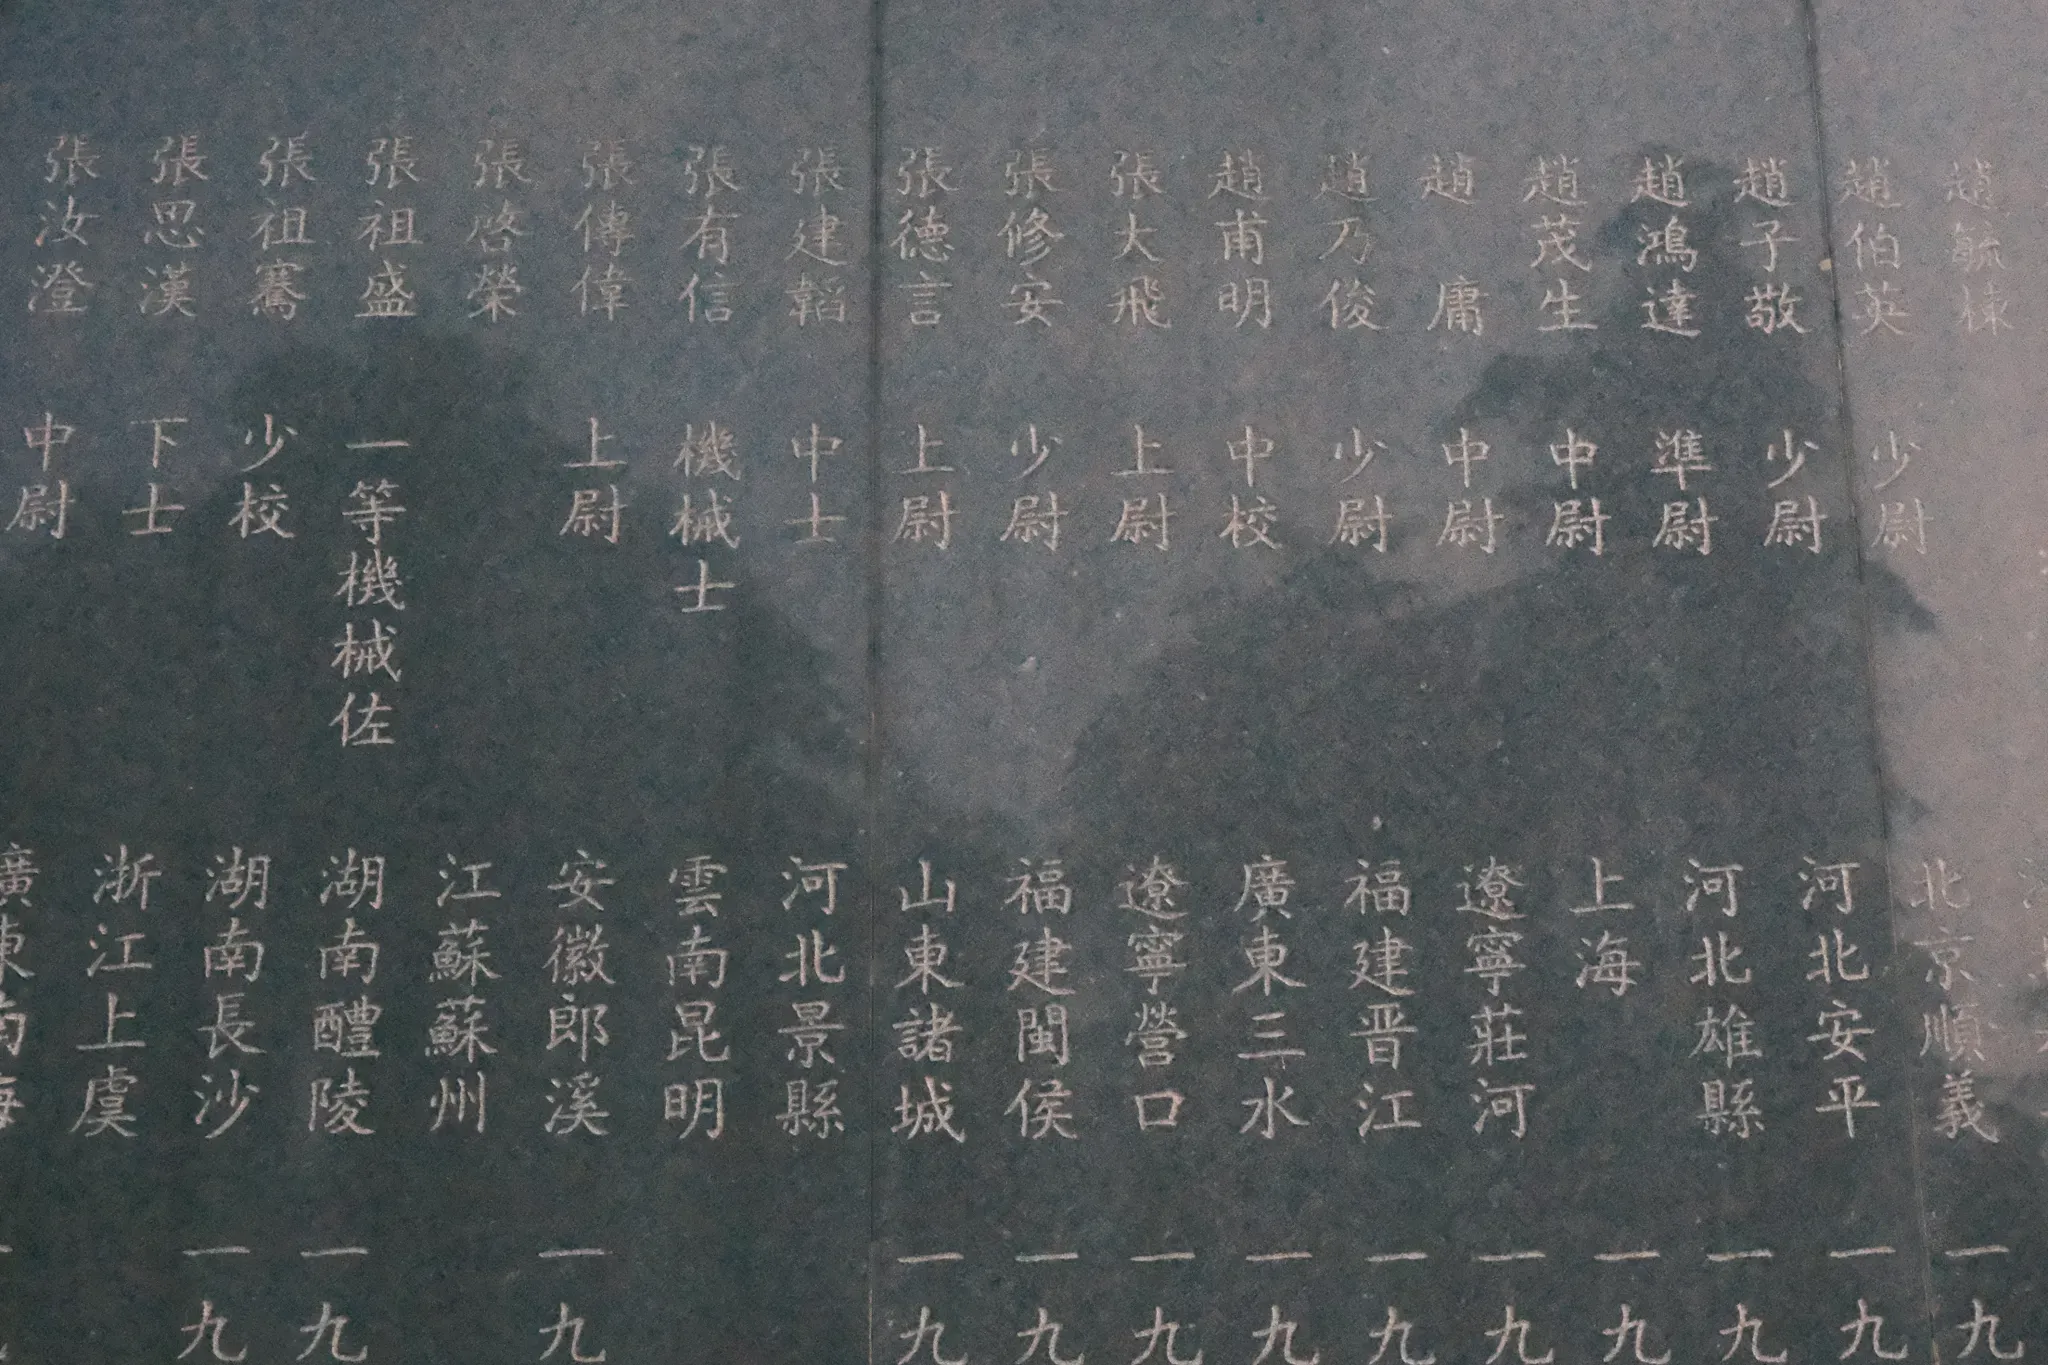 趙毓棣
趙伯英 少尉 北京順義 一九
趙子敬 少尉 河北安平 一九
趙鴻達 準尉 河北雄縣 一九
趙茂生 中尉 上海 一九
趙庸 中尉 遼寧莊河 一九
趙乃俊 少尉 福建晋江 一九
趙甫明 中校 廣東三水 一九
張大飛 上尉 遼寧營口 一九
張修安 少尉 福建閩侯 一九
張德言 上尉 山東諸城 一九
張建韜 中士 河北景縣
張有信 機械士 雲南昆明
張傳偉 上尉 安徽郎溪 一九
張啓榮 江蘇蘇州
張祖盛 一等機械佐 湖南醴陵 一九
張祖騫 少校 湖南長沙 一九
張思漢 下士 浙江上虞
張汝澄 中尉 廣東南海